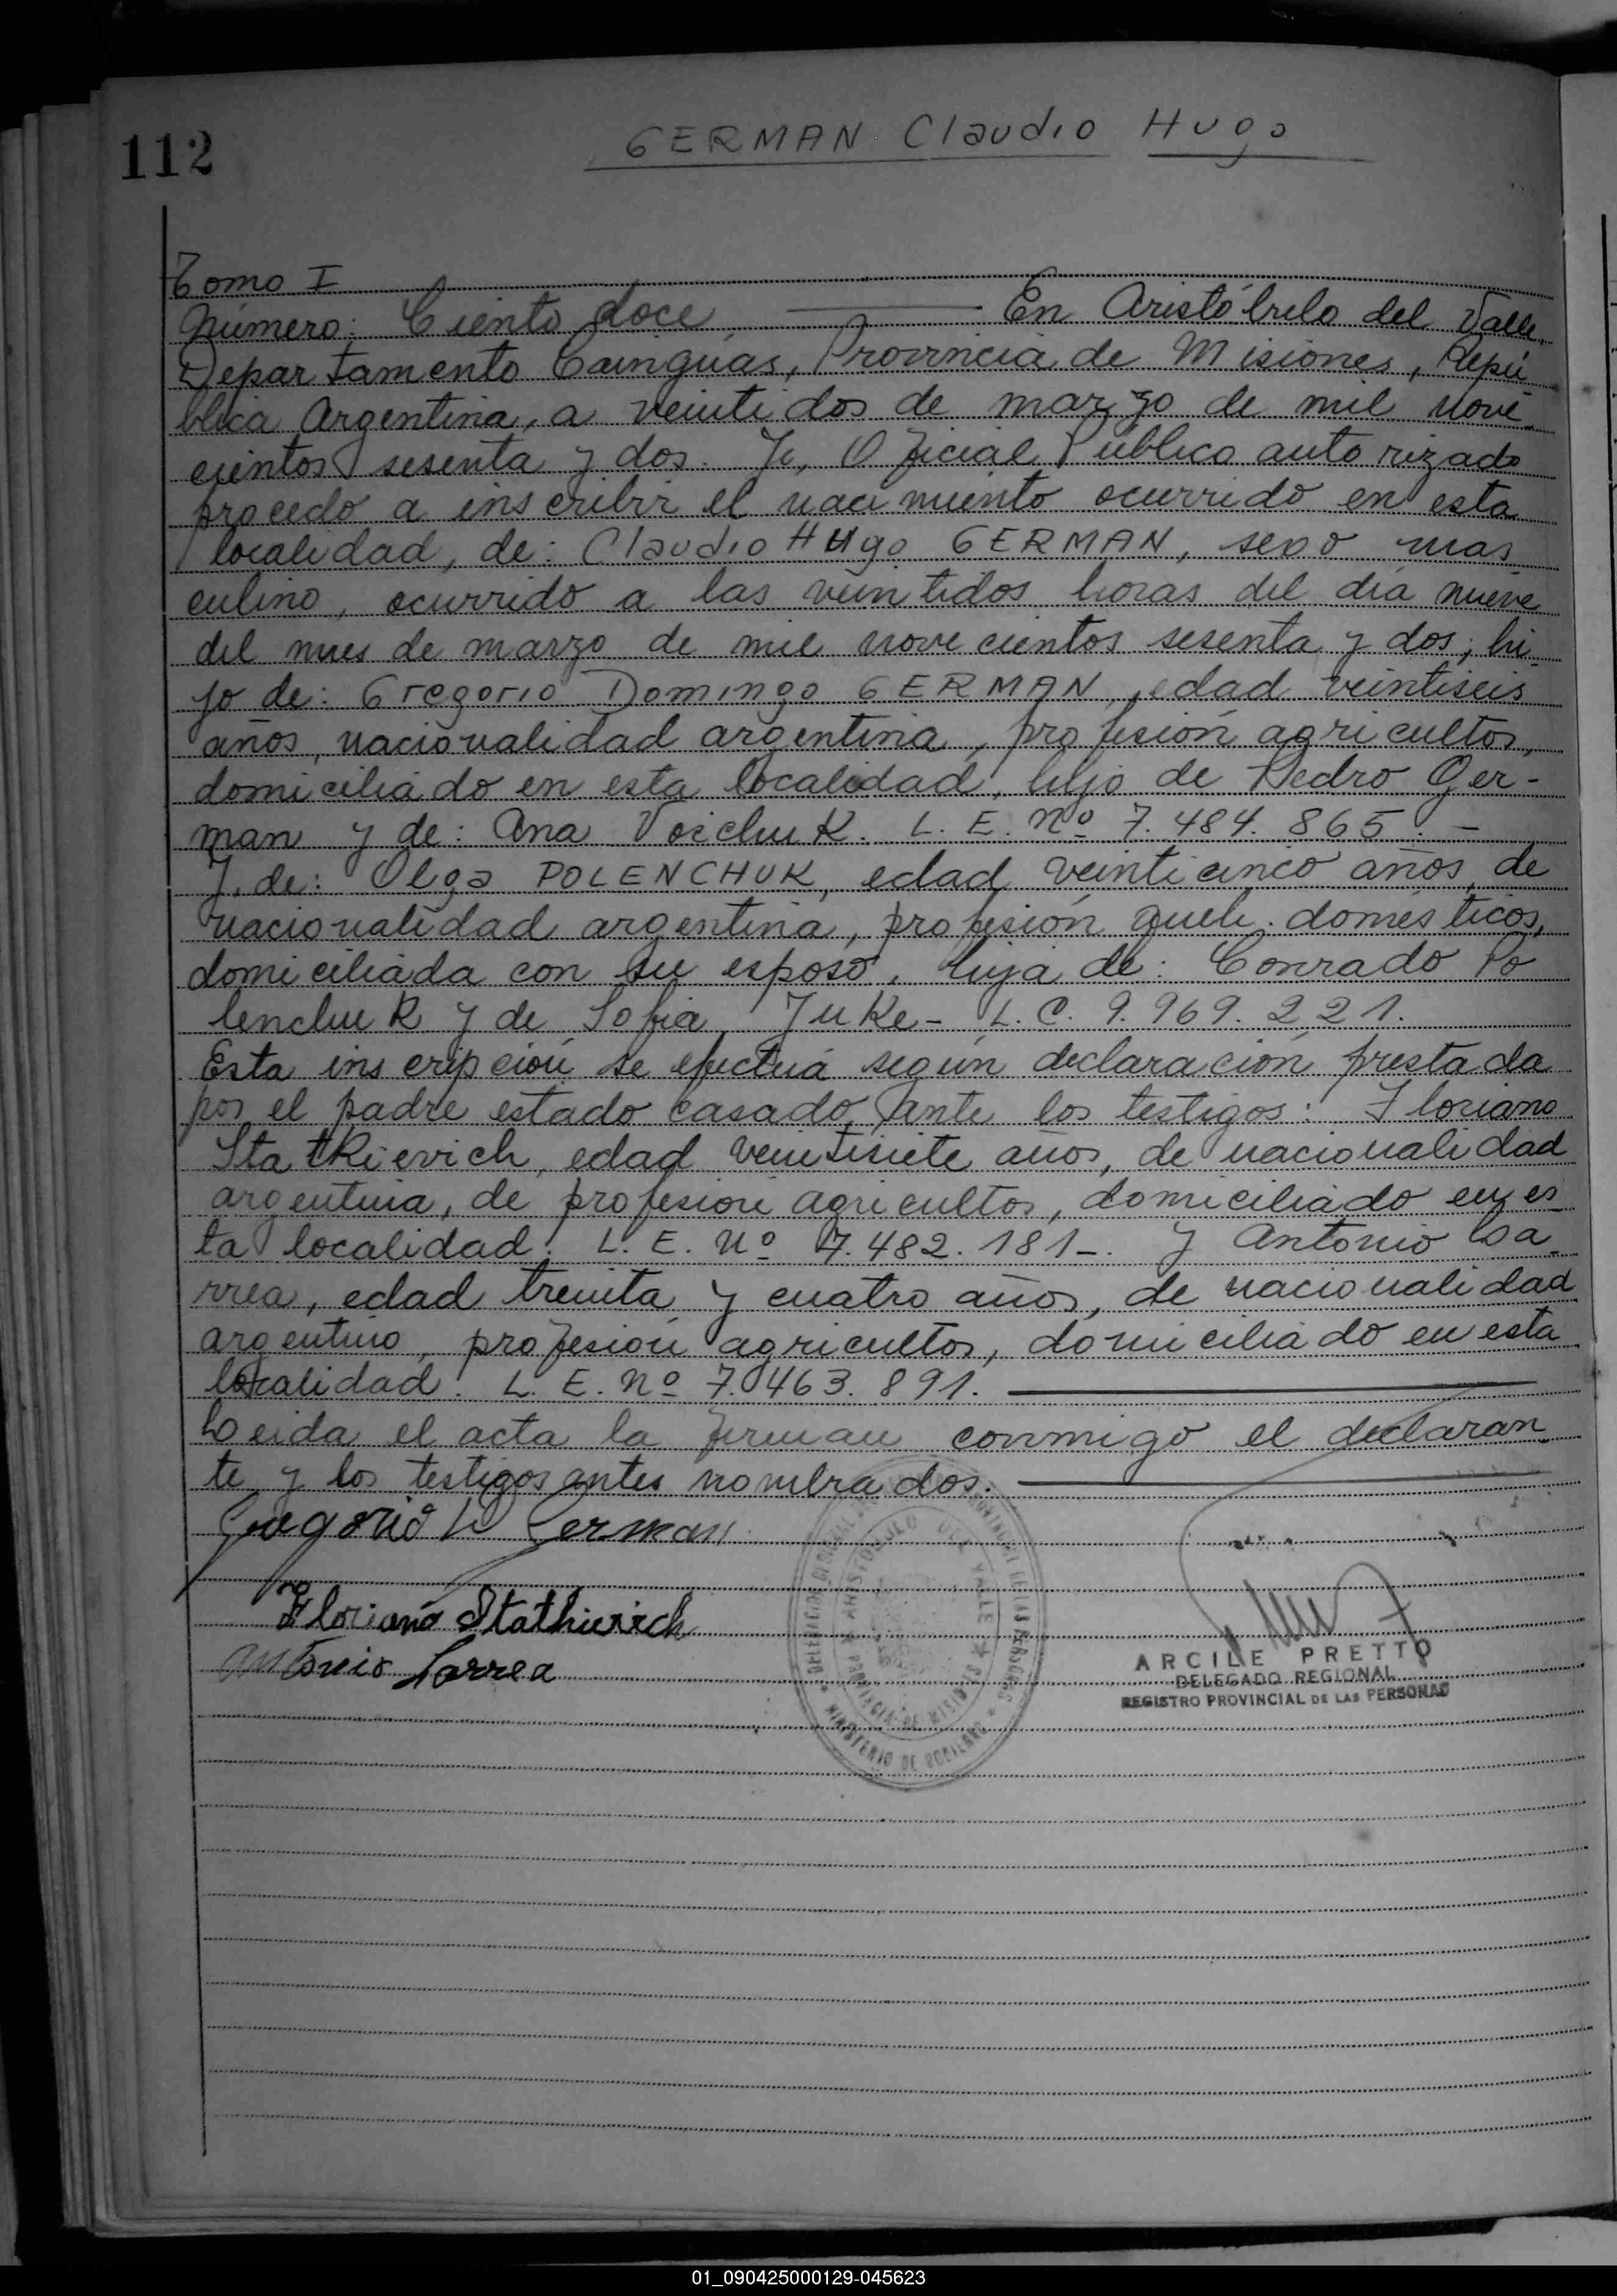 112
GERMAN Claudio Hugo
Tomo I
Número: Ciento doce En Aristóbulo del Valle,
Departamento Cainguás, Provincia de Misiones, Repú
blica Argentina, a veintidos de marzo de mil nove
cientos sesenta y dos. Yo, Oficial Público autorizado
procedo a inscribir el nacimiento ocurrido en esta
localidad, de: Claudio HUgo GERMAN, sexo mas
culino, ocurrido a las veintidos horas del día nueve
del mes de marzo de mil novecientos sesenta y dos; hi
jo de: Gregorio Domingo GERMAN, edad veintiseis
años, nacionalidad argentina, profesión agricultor,
domiciliado en esta localidad, hijo de Pedro Ger-
man y de: Ana Voichuk. L. E. Nº 7.484.865. -
Y, de: Olga POLENCHUK, edad veinticinco años, de
nacionalidad argentina, profesión queh. domésticos,
domiciliada con su esposo, hija de: Conrado Po
lenchuk y de Sofia Juke- L. C. 9.969.221.
Esta inscripción se efectuá según declaración prestada
por el padre estado casado, ante los testigos: Floriano
Statkievich, edad veintisiete años, de nacionalidad
argentina, de profesión agricultor, domiciliado en es
ta localidad. L. E. Nº 7.482.181-. Y Antonio La
rrea, edad treinta y cuatro años, de nacionalidad
argentino, profesión agricultor, domiciliado en esta
localidad. L. E. Nº 7.463.891.
Leida el acta la firman conmigo el declaran
te y los testigos antes nombrados.
Gregorio D German
Floriano Stathievich
Antonio Larrea
ARISTOBULO DEL VALLE
PROVINCIA DE MISIONES
MINISTERIO DE GOBIERNO
ARCILE PRETTO
DELEGADO REGIONAL
REGISTRO PROVINCIAL DE LAS PERSONAS
01_090425000129-045623